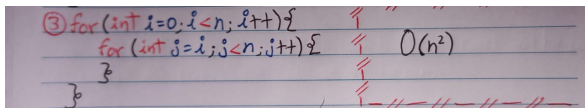 ③ for(int i=0; i<n; i++){
for (int j=i; j<n; j++) {
}
}
O(n²)